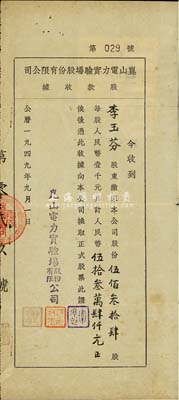 第 029 號
崑山電力實驗場股份有限公司
股款收據
今收到
李玉芬 股東繳到本公司股份 伍佰叁拾肆 股
每股人民幣壹千元 計人民幣 伍拾叁萬肆仟元正
俟後憑此收據向本公司換取正式股票此證
崑山電力實驗場股份有限公司
公曆一九四九年九月 日
第 號